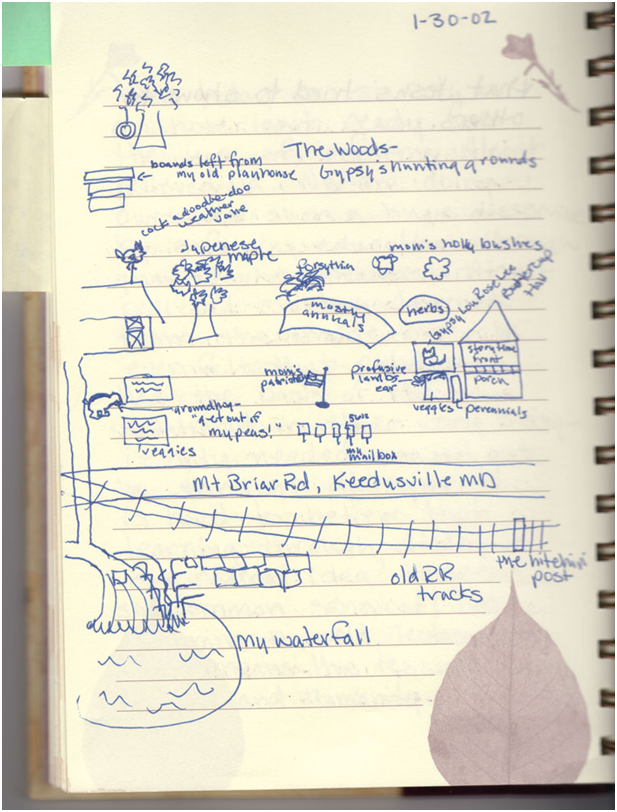 1-30-02
The Woods-
Gypsy's hunting grounds
boards left from
my old playhouse
cock adoodle doo
weather
vane
Japenese
maple
forsythia
mom's holly bushes
mostly
annuals
herbs
Gypsy Lou Rose Lee
Buttercup
storytime
front
porch
mom's
profusive
lambs
ear
veggies
perennials
groundhog-
"get out of
my peas!"
veggies
my
mailbox
Mt Briar Rd, Keedusville MD
the hitchin'
post
old RR
tracks
my waterfall